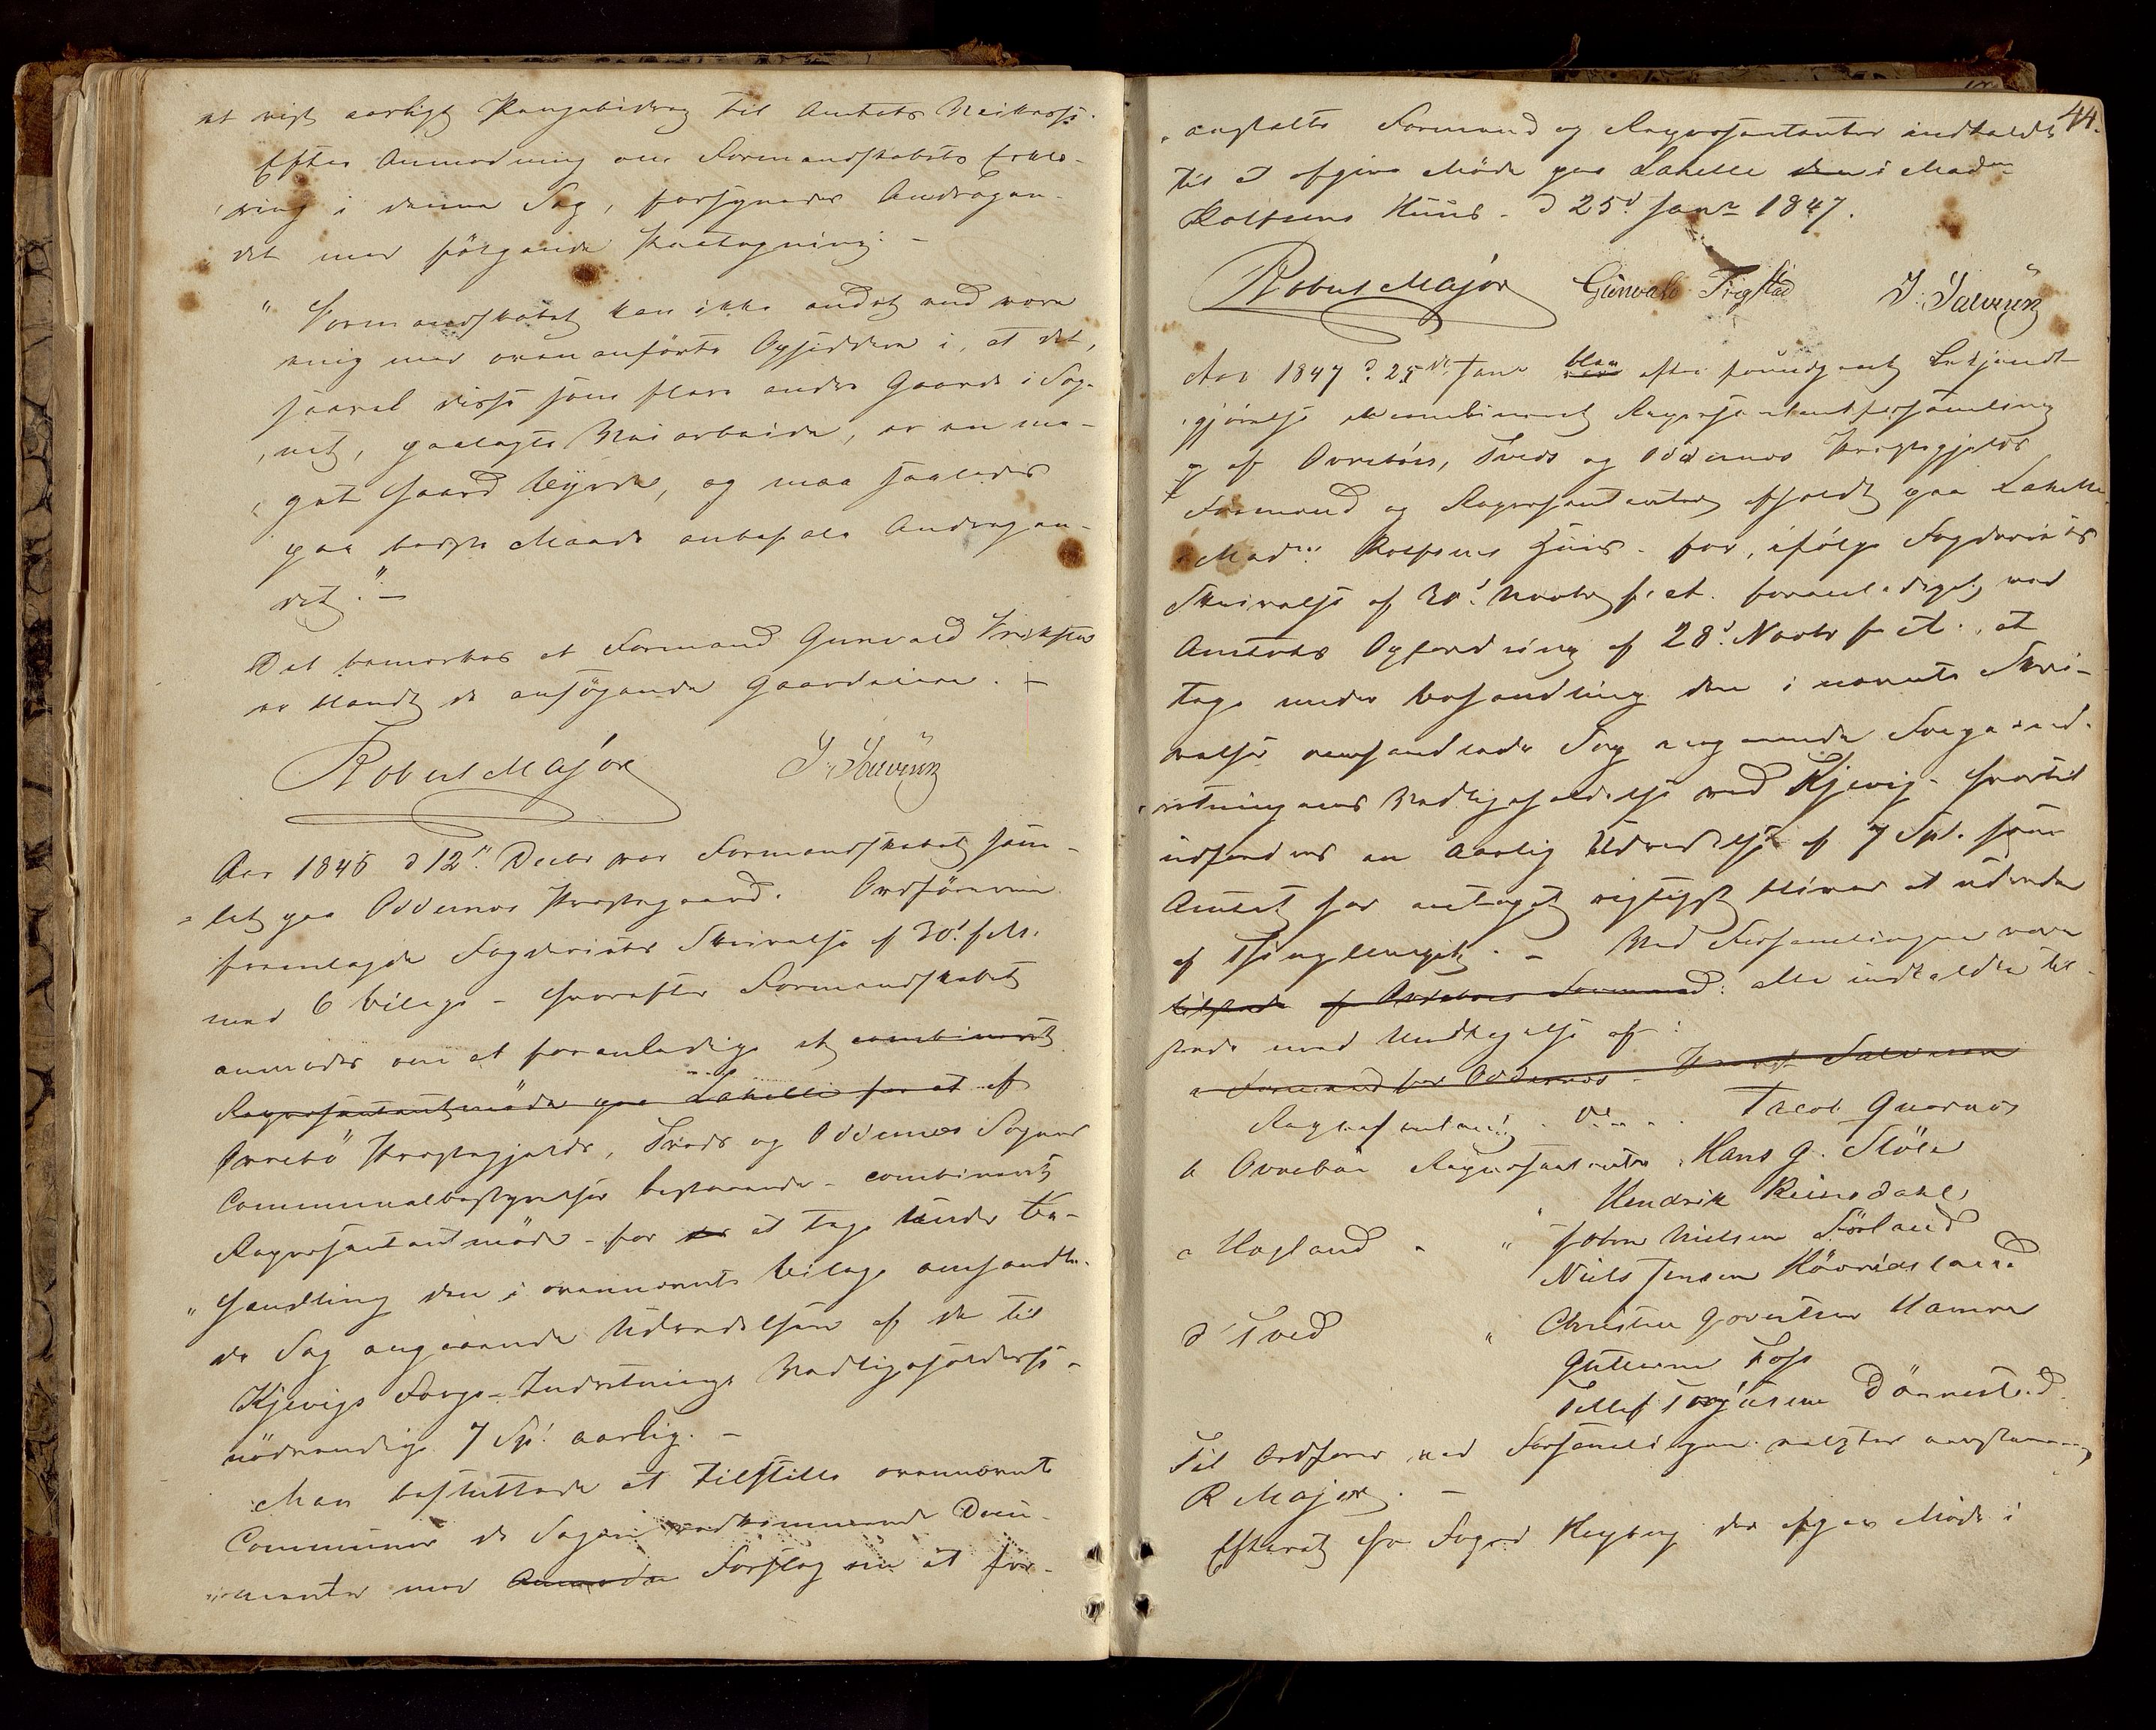 et vist aarligt Pengebidrag til Amtets Veikasse.
Efter Anmodning om Formandskabets Erklæ-
ring i denne Sag, forsynedes Andragen-
det med følgende Paategning: -
" Formandskabet kan ikke andet end være
enig med ovenanførte Opsiddere i, at det,
saavel disse som flere andre Gaarde i Sog-
net, paalagte Veiarbeide, er en me-
get haard Byrde, og maa saaledes
paa bedste Maade anbefale Andragen-
det." -
Det bemærkes at Formand Gunvald
er blandt de ansøgende Gaardeiere. -
Robert Major J. Salvesen
Aar 1846 d 12te Decbr var Formandskabet sam-
let paa Oddernes Præstegaard. Ordføreren
fremlagde Fogderiets Skrivelse af 30d f.M.
med 6 Bilage - hvorefter Formandskabet
anmodes om at foranledige et combineret
Repræsentantmøde paa Lahelle for at af
Øvrebø Præstegjelds, Tveds og Oddernes Sognes
Communalbestyrelser bestaaende - combineret
Repræsentantmøde - for at tage under Be-
handling den i ovennævnte Bilage omhandle-
de Sag angaaende Udredelsen af de til
Kjevigs Færge-Indretnings Vedligeholdelse
nødvendige 7 Sp! aarlig. -
Man besluttede at tilstille ovennævnte
Communer de Sagen vedkommende Docu-
menter med Anmoden Forslag om at for-
44.
anstalte Formænd og Repræsentanter indkaldt
til at afgive Møde paa Lahelle i Madm
Rolfsens Huus - d 25d Janr 1847.
Robert Major Gunvald J. Salvesen
Aar 1847 d. 25de Janr blev efter foregaaet Bekjendt-
gjørelse combineret Repræsentantforsamling
af Øvrebøes, Tveds og Oddernes Præstegjelds
Formænd og Repræsentanter afholdt paa Lahelle
i Madm Rolfsens Huus - for, ifølge Fogderiets
Skrivelse af 30d Novbr f. A. foranlediget ved
Amtets Opfordring af 28d Novbr f. A., at
tage under Behandling den i nævnte Skri-
velse omhandlede Sag angaaende Færgeind-
retningens Vedligeholdelse ved Kjevig - hvortil
udfordres en aarlig Udredelse af 7 Spd. som
Amtet har antaget rigtigst bliver at udrede
af Thinglauget. - Ved Forsamlingen vare
tilstede af Øvrebøes Formænd: alle indkaldte til-
stede med Undtagelse af:
a Formand for Oddernes - Salvesen
Repræsentant " Jacob Qvarnes
b Øvrebøe Repræsentanter Hans G. Støle
Hendrik Reinsdahl
c Hægland " " John Nielsen Førland
Niels Jensen
d Tved " Christen Govertsen Hamre
Guttorm Foss
Tellef Dønnestad.
Til Ordfører ved Forsamlingen valgtes eenstemmig
R Major. -
Efterat Hr Foged Heyberg der afgav Møde i